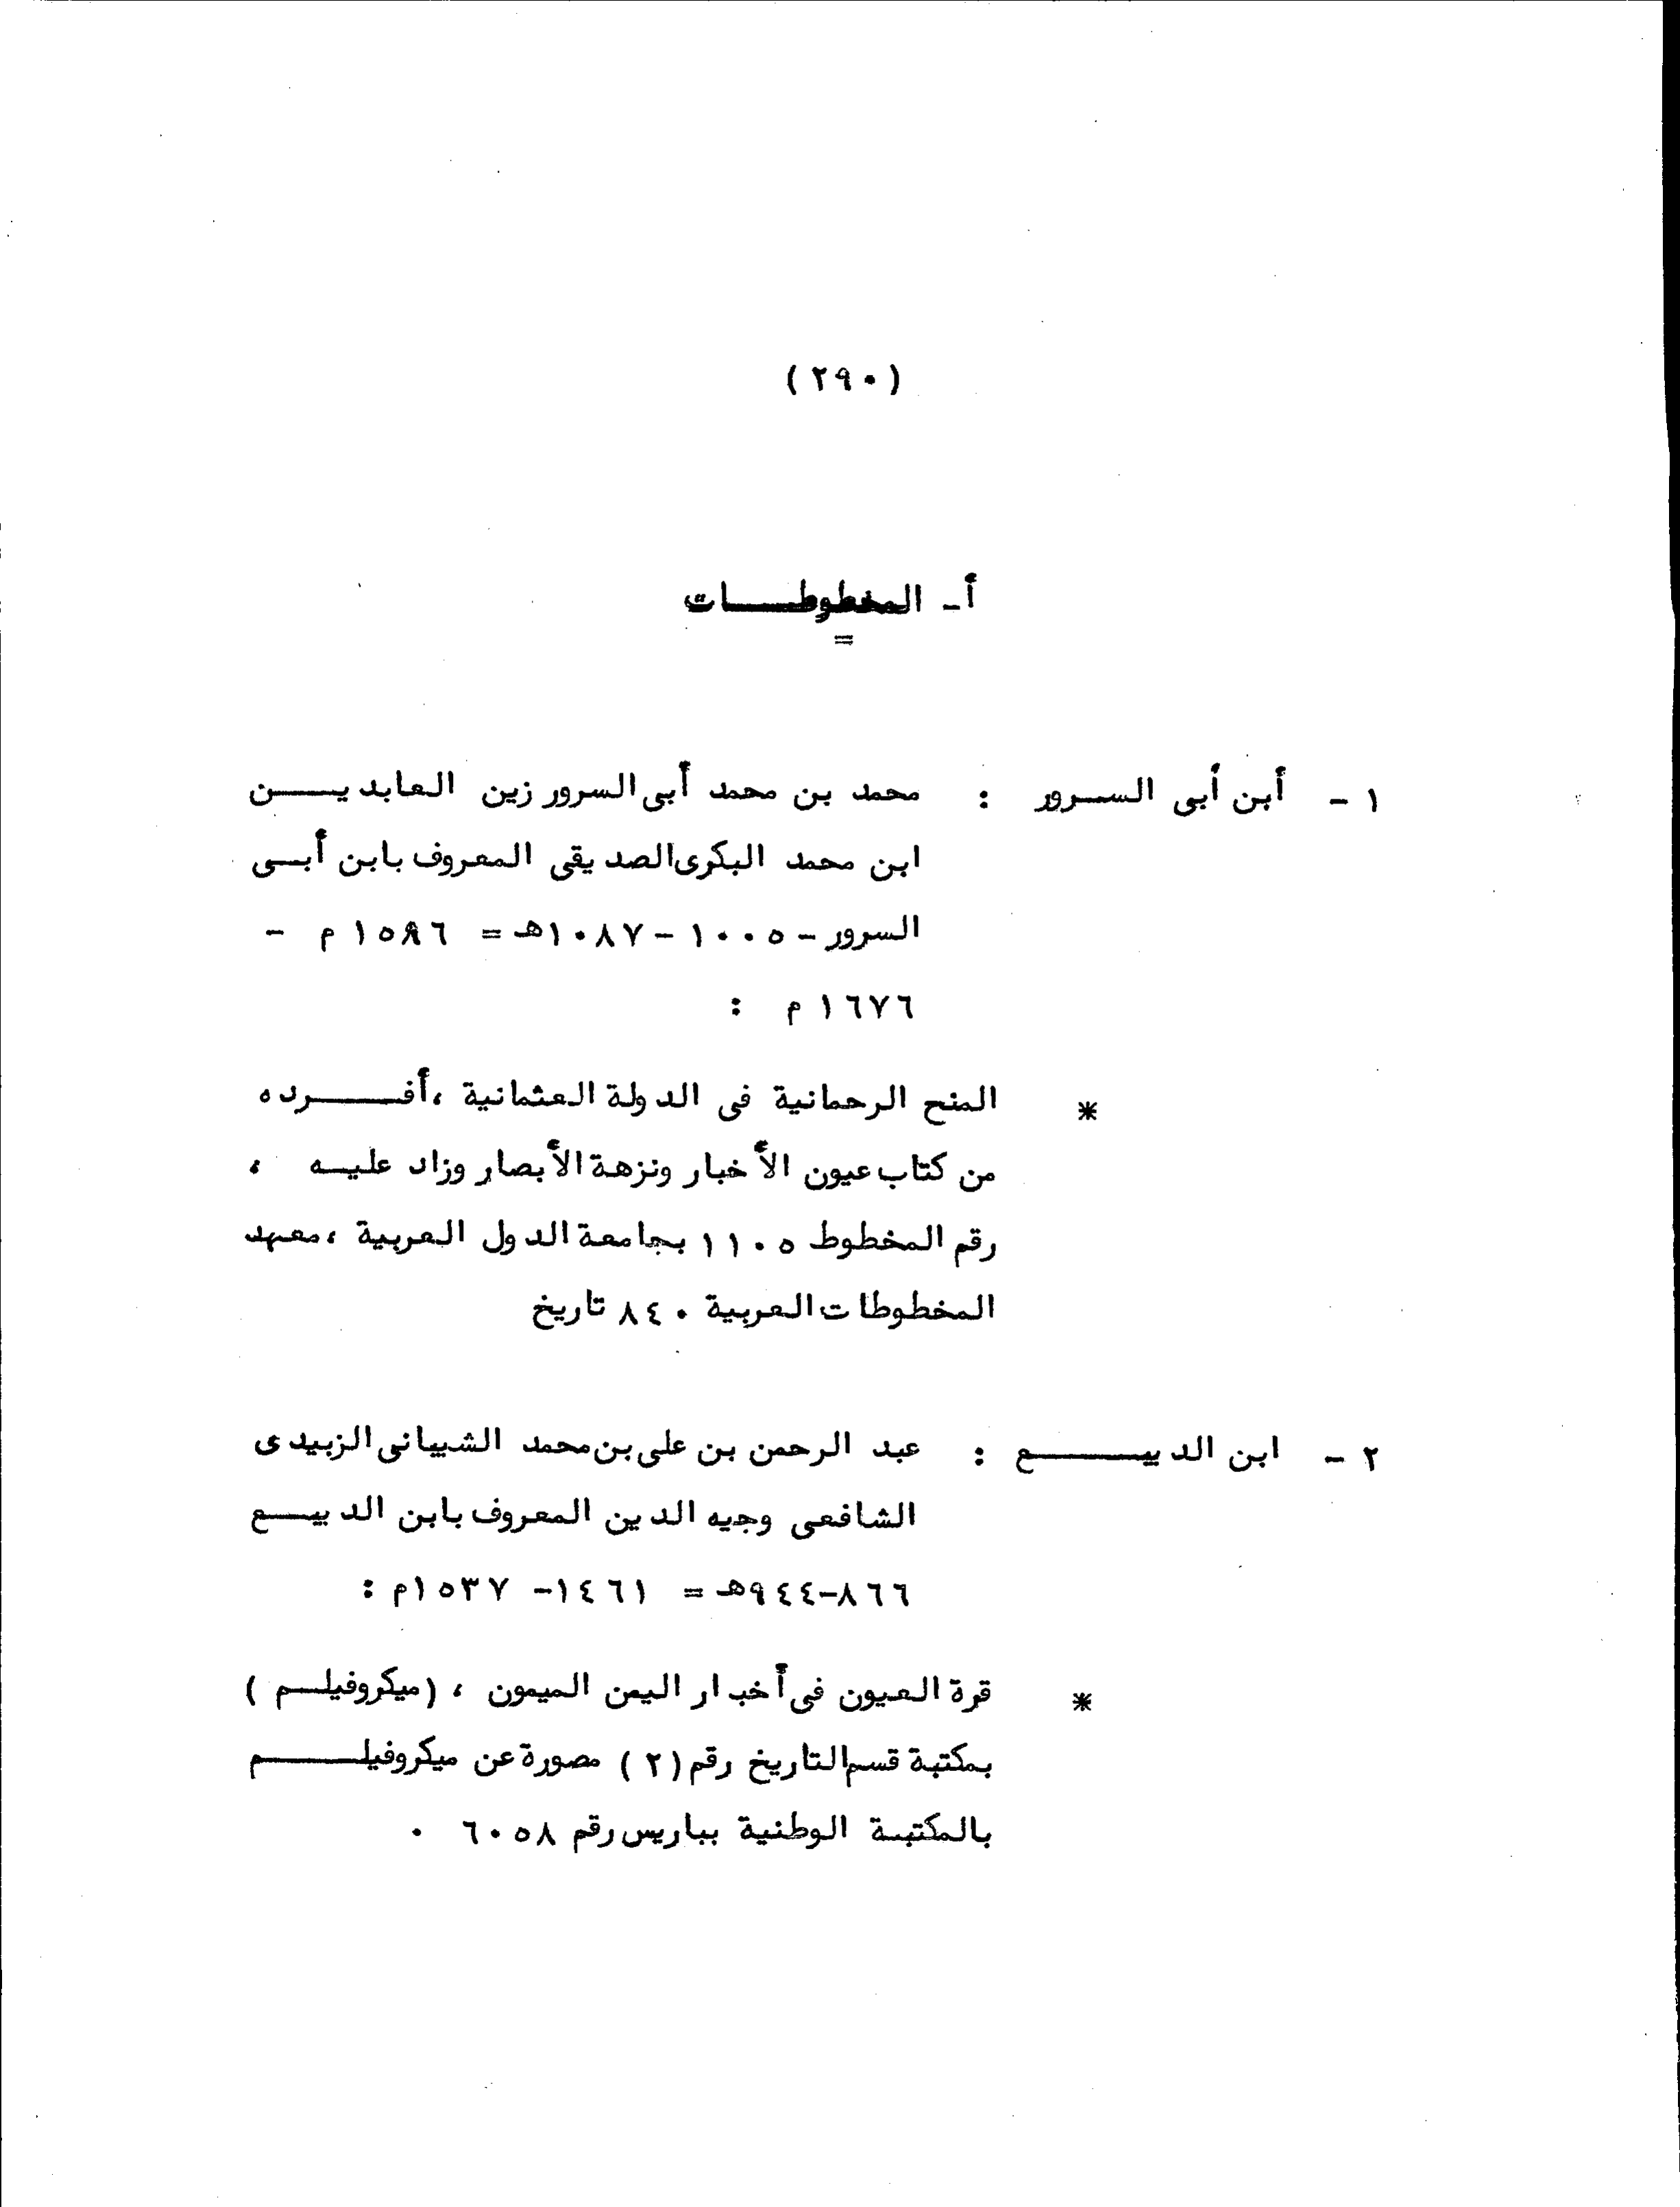 ( ٢٩٠ )
أ - المخطوطـــات
=
١ - أبن أبى الســرور : محمد بن محمد أبى السرور زين العابديـــن
ابن محمد البكرى الصديقى المعروف بابن أبــى
السرور - ١٠٠٥ - ١٠٨٧هـ = ١٥٩٦ م -
١٦٧٦ م :
* المنح الرحمانية فى الدولة العثمانية ، أفـــرده
من كتاب عيون الأخبار ونزهة الأبصار وزاد عليــه ،
رقم المخطوط ١١٠٥ بجامعة الدول العربية ، معهد
المخطوطات العربية ٨٤٠ تاريخ
٢ - ابن الديبـــــع : عبد الرحمن بن على بن محمد الشيبانى الزبيدى
الشافعى وجيه الدين المعروف بابن الديبــع
٨٦٦-٩٤٤هـ = ١٤٦١- ١٥٣٧م :
* قرة العيون فى أخبار اليمن الميمون ، (ميكروفيلــم )
بمكتبة قسم التاريخ رقم (٢ ) مصورة عن ميكروفيلـــــم
بالمكتبة الوطنية بباريس رقم ٦٠٥٨ .